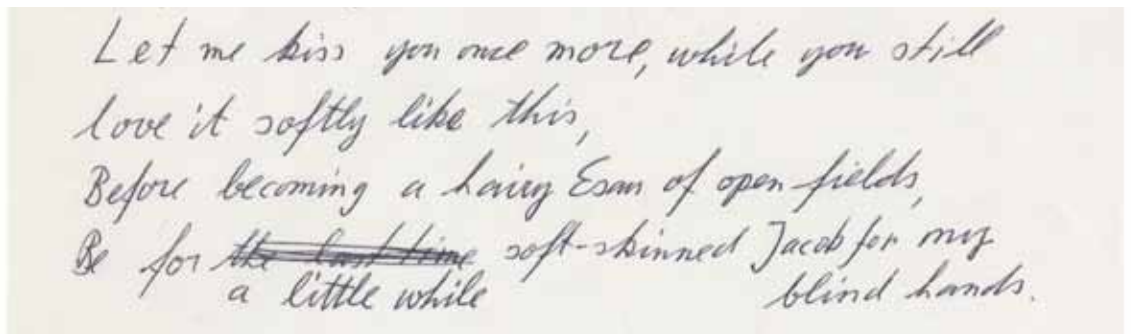 Let me kiss you once more, while you still
love it softly like this,
Before becoming a hairy Esau of open fields,
Be for the last time soft-skinned Jacob for my
a little while blind hands.